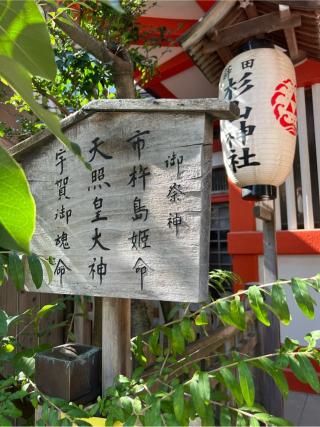 御祭神
市杵島姫命
天照皇大神
宇賀御魂命
杉山神社